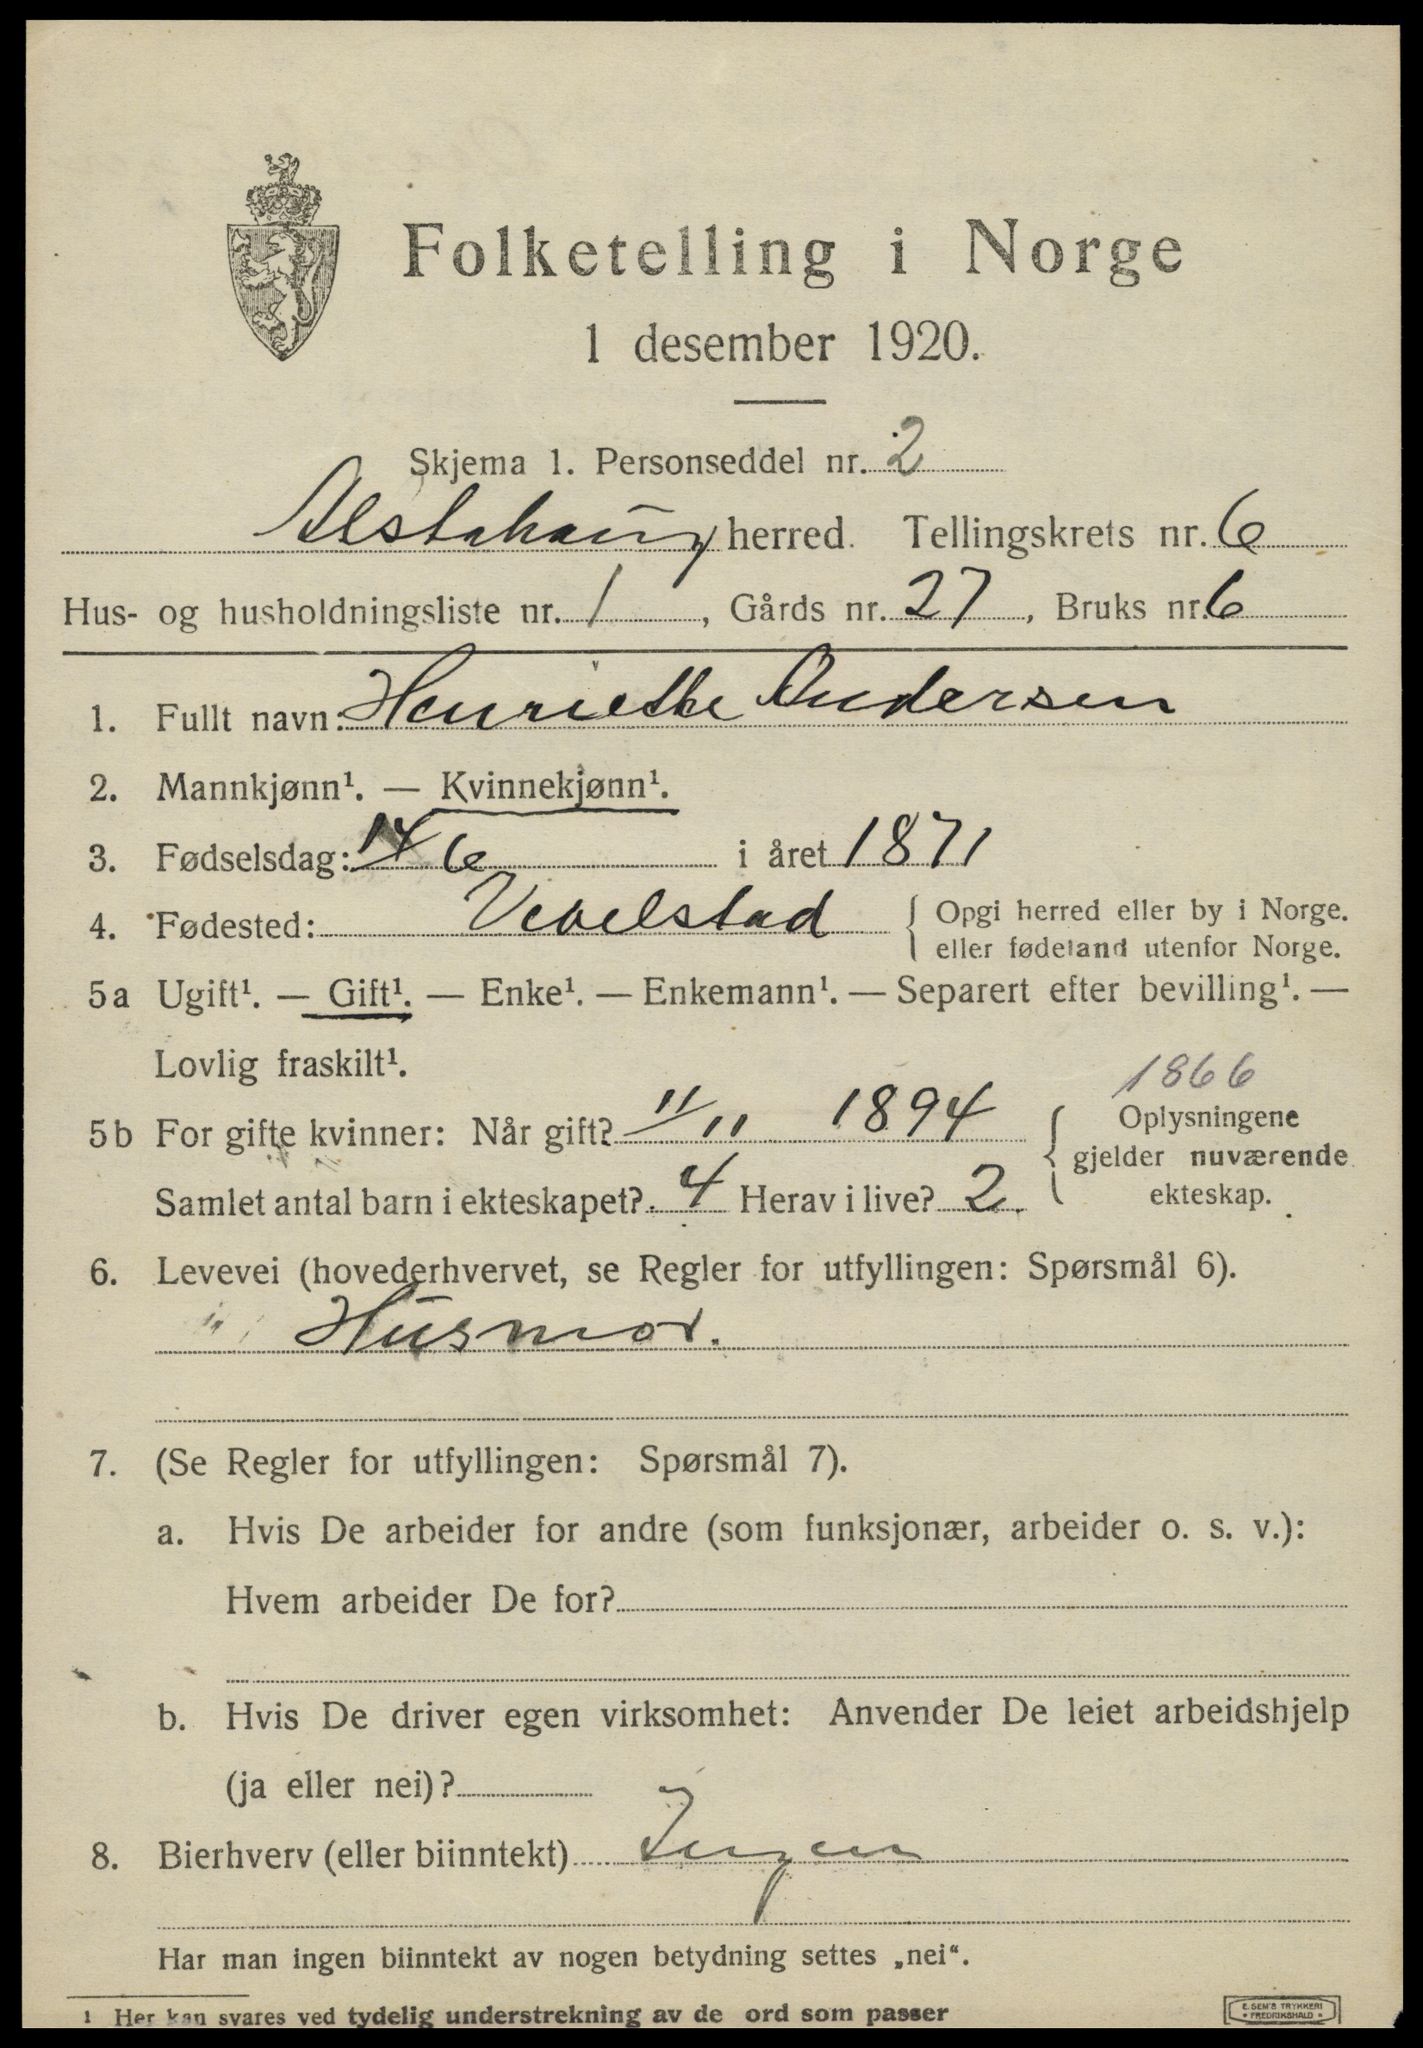 Folketelling i Norge
1 desember 1920.
Skjema 1. Personseddel nr. 2
Alstahaug herred. Tellingskrets nr. 6
Hus- og husholdningsliste nr. 1, Gårds nr. 27, Bruks nr. 6
1. Fullt navn: Henriette Andersen
2. Mannkjønn¹. — Kvinnekjønn¹.
3. Fødselsdag: 14/6 i året 1871
4. Fødested: Vevelstad { Opgi herred eller by i Norge.
eller fødeland utenfor Norge.
5a Ugift¹. — Gift¹. — Enke¹. — Enkemann¹. — Separert efter bevilling¹. —
Lovlig fraskilt¹.
1866
5b For gifte kvinner: Når gift? 11/11 1894 { Oplysningene
gjelder nuværende
Samlet antal barn i ekteskapet? 4 Herav i live? 2. ekteskap.
6. Levevei (hovederhvervet, se Regler for utfyllingen: Spørsmål 6).
Husmor.
7. (Se Regler for utfyllingen: Spørsmål 7).
a. Hvis De arbeider for andre (som funksjonær, arbeider o. s. v.):
Hvem arbeider De for?
b. Hvis De driver egen virksomhet: Anvender De leiet arbeidshjelp
(ja eller nei)?
8. Bierhverv (eller biinntekt) Ingen
Har man ingen biinntekt av nogen betydning settes „nei“.
1 Her kan svares ved tydelig understrekning av de ord som passer
E. SEM'S TRYKKERI
• FREDRIKSHALD •